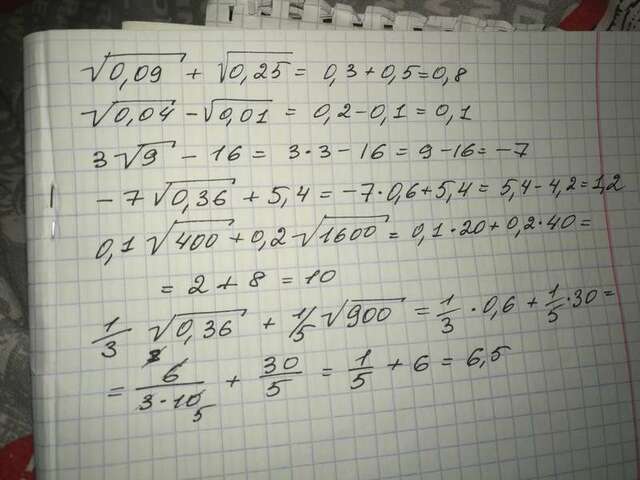 √0,09 + √0,25 = 0,3 + 0,5 = 0,8
√0,04 - √0,01 = 0,2 - 0,1 = 0,1
3√9 - 16 = 3·3 - 16 = 9 - 16 = -7
-7√0,36 + 5,4 = -7·0,6 + 5,4 = 5,4 - 4,2 = 1,2
0,1√400 + 0,2√1600 = 0,1·20 + 0,2·40 =
= 2 + 8 = 10
1/3 √0,36 + 1/5 √900 = 1/3 · 0,6 + 1/5 · 30 =
= 6/(3·10) + 30/5 = 1/5 + 6 = 6,5